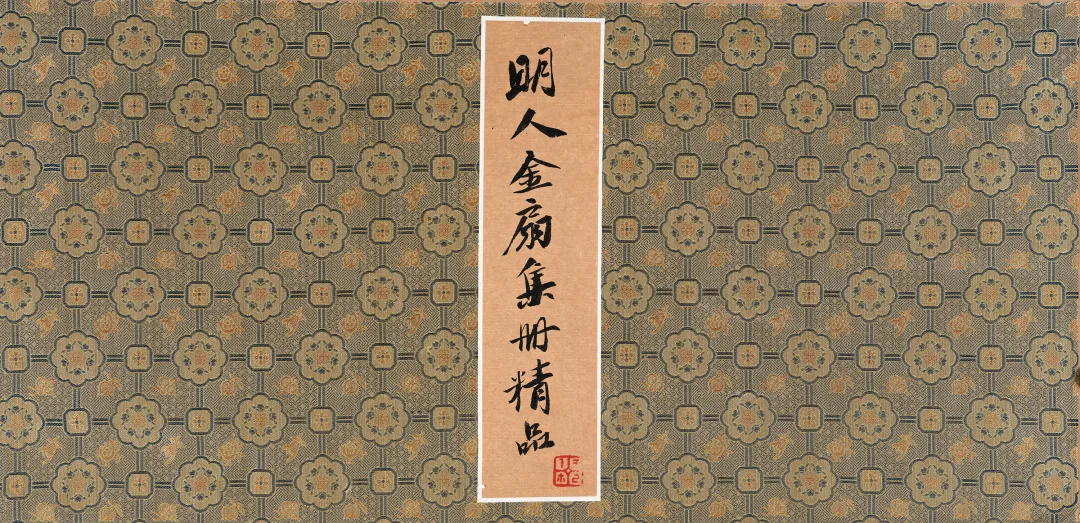 明人金扇集册精品